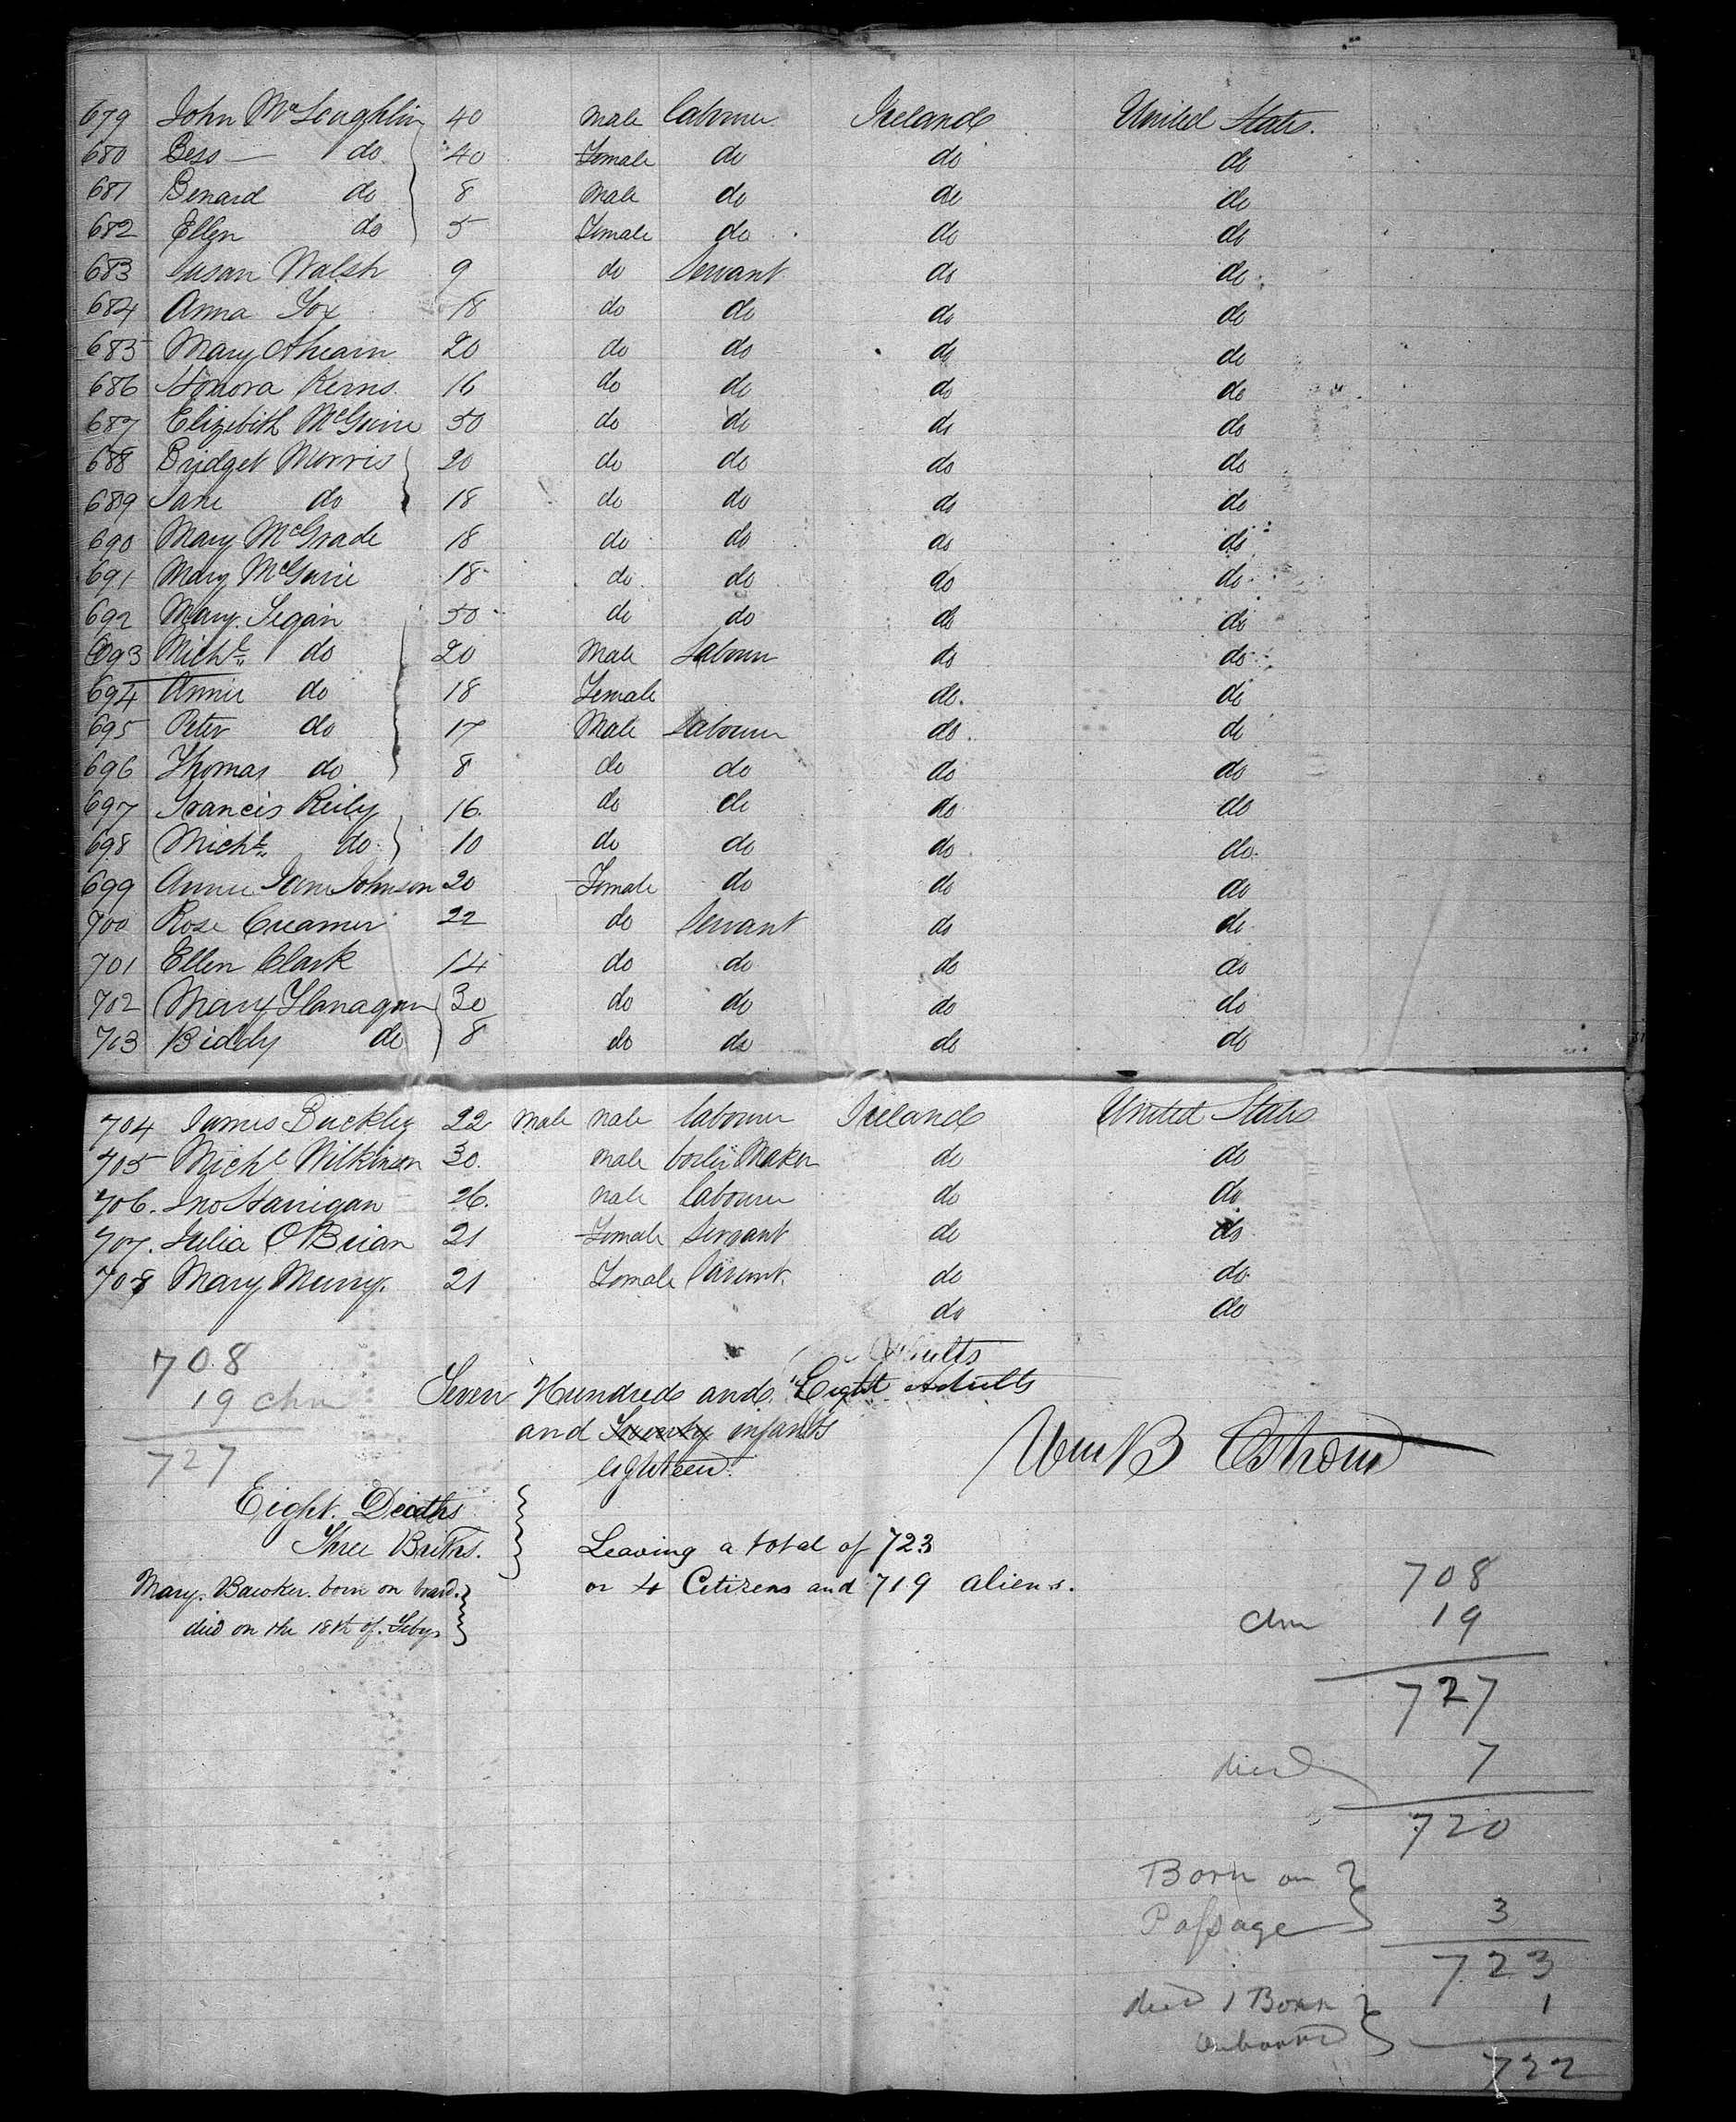 679 John McLoughlin 40 Male labourer Ireland United States.
680 Bess — do 40 Female do do do
681 Benard do 8 Male do do do
682 Ellen do 5 Female do do do
683 Susan Walsh 9 do Servant do do
684 Anna Fox 18 do do do do
685 Mary Ahearn 20 do do do do
686 Honora Kerns 16 do do do do
687 Elizibith McGuire 50 do do do do
688 Bridget Morris 20 do do do do
689 Jane do 18 do do do do
690 Mary McGrade 18 do do do do
691 Mary McGuire 18 do do do do
692 Mary Segan 50 do do do do
693 Michl do 20 Male Labour do do
694 Annie do 18 Female do do
695 Peter do 17 Male Labourer do do
696 Thomas do 8 do do do do
697 Francis Reily 16 do do do do
698 Michl do 10 do do do do
699 Annie Jane Johnson 20 Female do do do
700 Rose Creamer 22 do Servant do do
701 Ellen Clark 14 do do do do
702 Mary Flanagan 30 do do do do
703 Biddy do 8 do do do do
704 James Buckley 22 Male Male labourer Ireland United States
705 Michl Wilkinson 30. Male boiler Maker do do
706. Jno Harrigan 26. Male labourer do do
707. Julia O'Brian 21 Female Servant do do
708 Mary Murry. 21 Female Servant do do
do do
708
19 chn
727
Adults
Seven Hundred and Eight Adults
and Twenty infants
eighteen
Wm B Ostrom
Eight Deaths
Three Births.
Leaving a total of 723
or 4 Citizens and 719 aliens.
Mary Bawker born on board.
died on the 18th of Feby
708
chn 19
727
died 7
720
Born on
Passage 3
723
died 1 Born 1
onboard
722